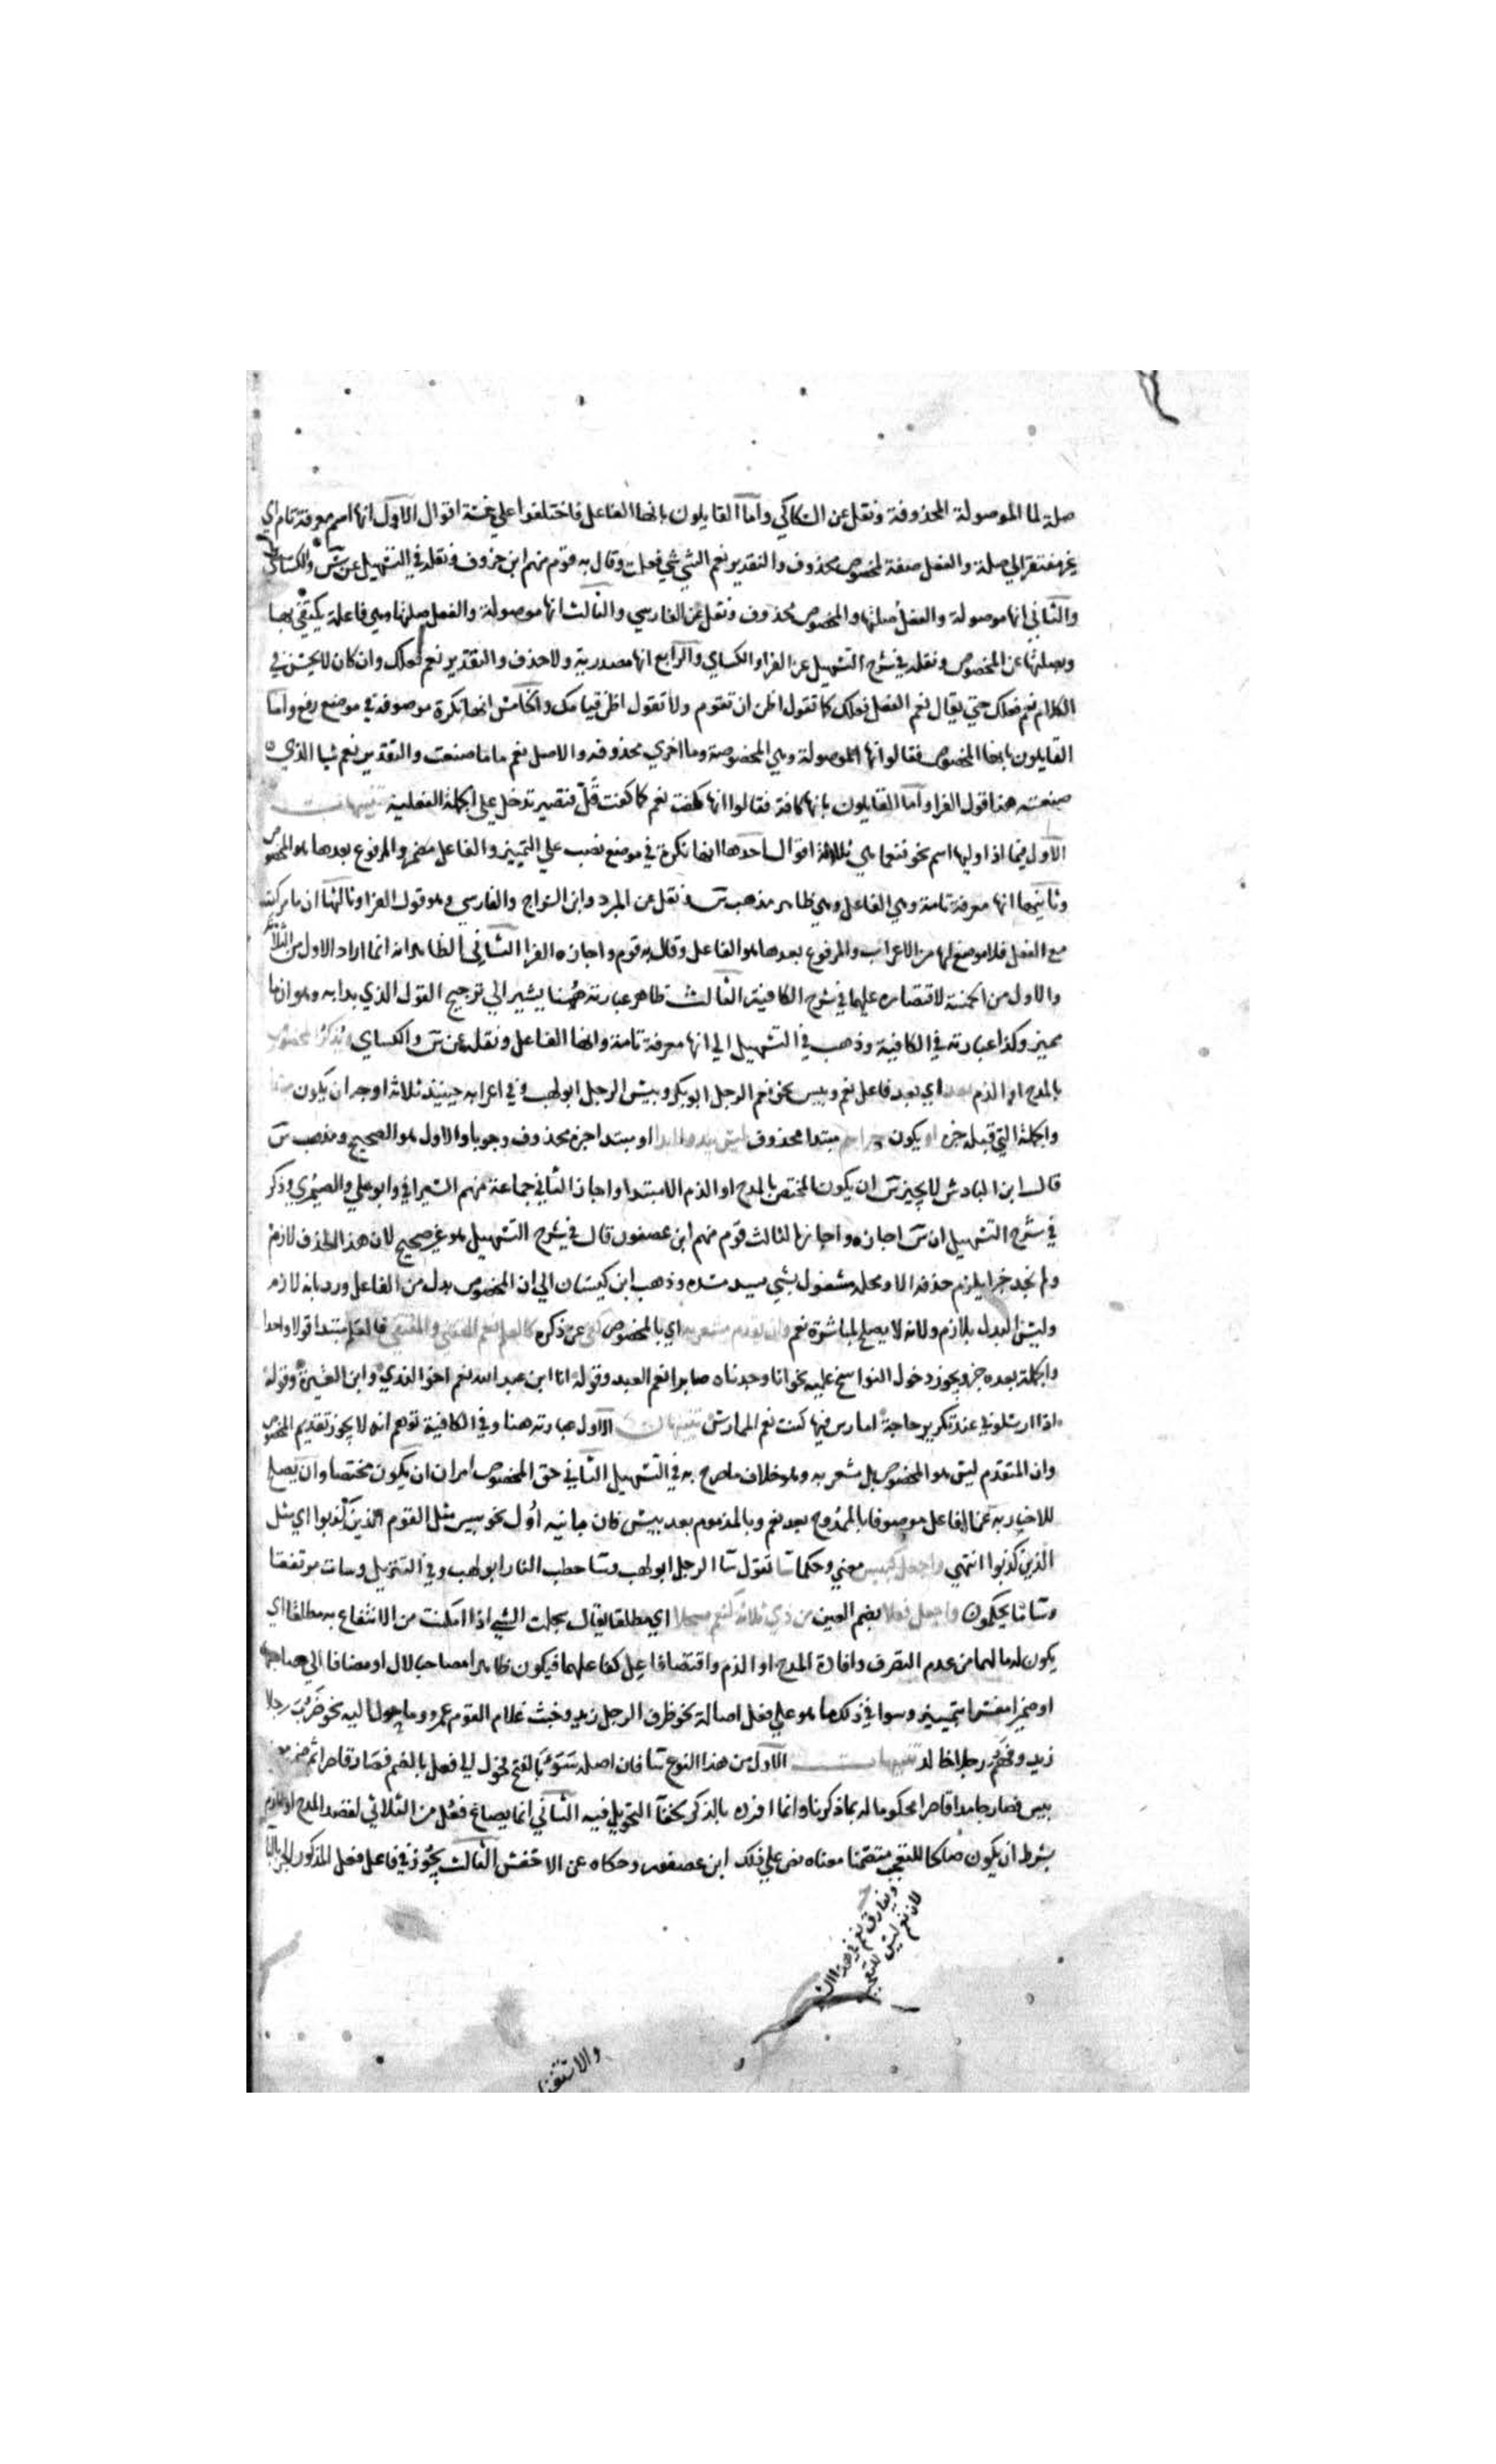 صلة لما الموصولة المحذوفة ونقل عن الكاكي واما القايلون بانها الفاعل فاختلفوا علي خمسة اقوال الاول انها اسم معرفة تام اي
غير مفتقر الي صلة والفعل صفة لمخصوص محذوف والتقدير نعم الشي شي فعلت وقال به قوم منهم ابن خروف ونقله في التسهيل عن س والكساي
والثاني انها موصولة والفعل صلتها والمخصوص محذوف ونقل عن الفارسي والثالث انها موصولة والفعل صلتها وهي فاعلة يكتفي بها
وبصلتها عن المخصوص ونقله في شرح التسهيل عن الفرا والكساي والرابع انها مصدرية ولا حذف والتقدير نعم فعلك وان كان لا يحسن في
الكلام نعم فعلك حتي يقال نعم الفعل فعلك كما تقول اظن ان تقوم ولا تقول اظن قيامك والخامس انها نكرة موصوفة في موضع رفع واما
القايلون بانها المخصوص فقالوا انها الموصولة وهي المخصوصة وما اخري محذوفه والاصل نعم ما ما صنعت والتقدير نعم شيا الذي
صنعته هذا قول الفرا واما القايلون بانها كافة فقالوا انها كفت نعم كما كفت قل فتصير تدخل علي الجملة الفعلية تنبيهات
الاول فيما اذا اوليها اسم نحو فنعما هي ثلاثة اقوال احدها انها نكرة في موضع نصب علي التمييز والفاعل مضمر والمرفوع بعدها هو المخصوص
وثانيها انها معرفة تامة وهي الفاعل وهي ظاهر مذهب س ونقل عن المبرد وابن السراج والفارسي وهو قول الفرا وثالثها ان ما ركبت
مع الفعل فلا موضع لها من الاعراب والمرفوع بعدها هو الفاعل وقال به قوم واجازه الفرا الثاني الظاهر انه انما اراد الاول من الثلاثة
والاول من الخمسة لاقتصاره عليهما في شرح الكافية الثالث ظاهر عبارته هنا يشير الي ترجيح القول الذي بدا به وهو ان ما
مميز وكذا عبارته في الكافية وذهب في التسهيل الي انها معرفة تامة وانها الفاعل ونقله عن س والكساي ويذكر المخصوص
بالمدح او الذم بعد اي بعد فاعل نعم وبيس نحو نعم الرجل ابو بكر وبيس الرجل ابو لهب وفي اعرابه حينيذ ثلاثة اوجه ان يكون مبتدا
والجملة التي قبله خبر او يكون خبر اسم مبتدا محذوف ليس يبدو ابدا او مبتدا خبره محذوف وجوبا والاول هو الصحيح ومذهب س
قال ابن الباذش لا يجيز س ان يكون المختص بالمدح او الذم الا مبتدا واجاز الثاني جماعة منهم السيرافي وابو علي والصيمري وذكر
في شرح التسهيل ان س اجازه واجاز الثالث قوم منهم ابن عصفور قال في شرح التسهيل هو غير صحيح لان هذا الحذف لازم
ولم نجد خبرا يلزم حذفه الا ومحله مشغول بشي يسد مسده وذهب ابن كيسان الي ان المخصوص بدل من الفاعل ورد بانه لازم
وليس البدل بلازم ولانه لا يصلح لمباشرة نعم وان يقدم مشعر به اي بالمخصوص كفي عن ذكره كالعلم نعم المقتني والمقتفي فالعلم مبتدا قولا واحدا
والجملة بعده خبر ويجوز دخول النواسخ عليه نحو انا وجدناه صابرا نعم العبد وقوله انا ابن عبد الله نعم اخو الندي وابن العشيرة وقوله
اذا ارسلوني عند تكرير حاجة امارس فيها كنت نعم الممارس تنبيهات الاول عبارته هنا وفي الكافية توهم انه لا يجوز تقديم المخصوص
وان المتقدم ليس هو المخصوص بل مشعر به وهو خلاف ما صرح به في التسهيل الثاني حق المخصوص امران ان يكون مختصا وان يصلح
للاخبار به عن الفاعل موصوفا بالممدوح بعد نعم وبالمذموم بعد بيس فان باينه اول نحو بيس مثل القوم الذين كذبوا اي مثل
الذين كذبوا انتهي واجعل كبيس معني وحكما سا تقول سا الرجل ابو لهب وسا حطب النار ابو لهب وفي التنزيل وسات مرتفقا
وسا ما يحكمون واجعل فعلا بضم العين من ذي ثلاثة كنعم مسجلا اي مطلقا يقال سجلت الشي اذا امكنت من الانتفاع به مطلقا اي
يكون له ما لهما من عدم التصرف وافادة المدح او الذم واقتضا فاعل كفاعلهما فيكون ظاهرا مصاحبا لال او مضافا الي مصاحبها
او ضميرا مفسرا بتمييز وسوا في ذلك ما هو علي فعل اصالة نحو ظرف الرجل زيد وخبث غلام القوم عمرو وما حول اليه نحو ضرب رجلا
زيد وفهم رجلا خالد تنبيهات الاول من هذا النوع سا فان اصله سوء بالفتح فحول الي فعل بالضم فصار قاصرا ثم ضمن معني
بيس فصار جامدا قاصرا محكوما له بما ذكرنا وانما افرده بالذكر لخفا التحويل فيه الثاني انما يصاغ فعل من الثلاثي لقصد المدح او الذم
بشرط ان يكون صالحا للتعجب متضمنا معناه نص علي ذلك ابن عصفور وحكاه عن الاخفش الثالث يجوز في فاعل فعل المذكور الجر بالبا
ويفارق نعم في هذا
لان نعم ليس للتعجب